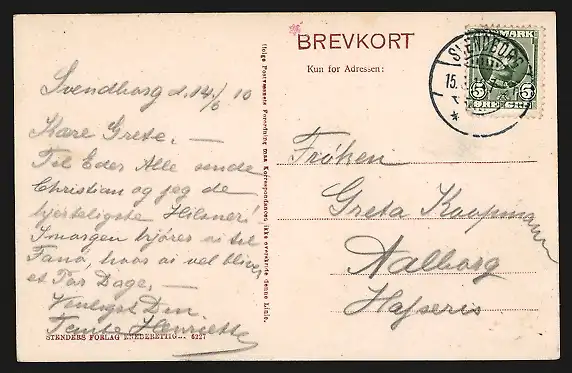 BREVKORT
Kun for Adressen:
Svendborg d. 14/6 10
Kære Grete. —
Til Eder Alle sende
Christian og jeg de
hjerteligste Hilsner!
Imorgen kjører vi til
Fanø, hvor vi vel bliver
et Par Dage. —
Venligst Din
Tante Henriette
Frøken
Greta Koopmann
Aalborg
Hasseris
SVENDBORG
15.
DANMARK
5 ØRE 5
Ifølge Postvæsenets Forordning maa Korrespondancen ikke overskride denne Linie.
STENDERS FORLAG ENEBERETTIG... 6227